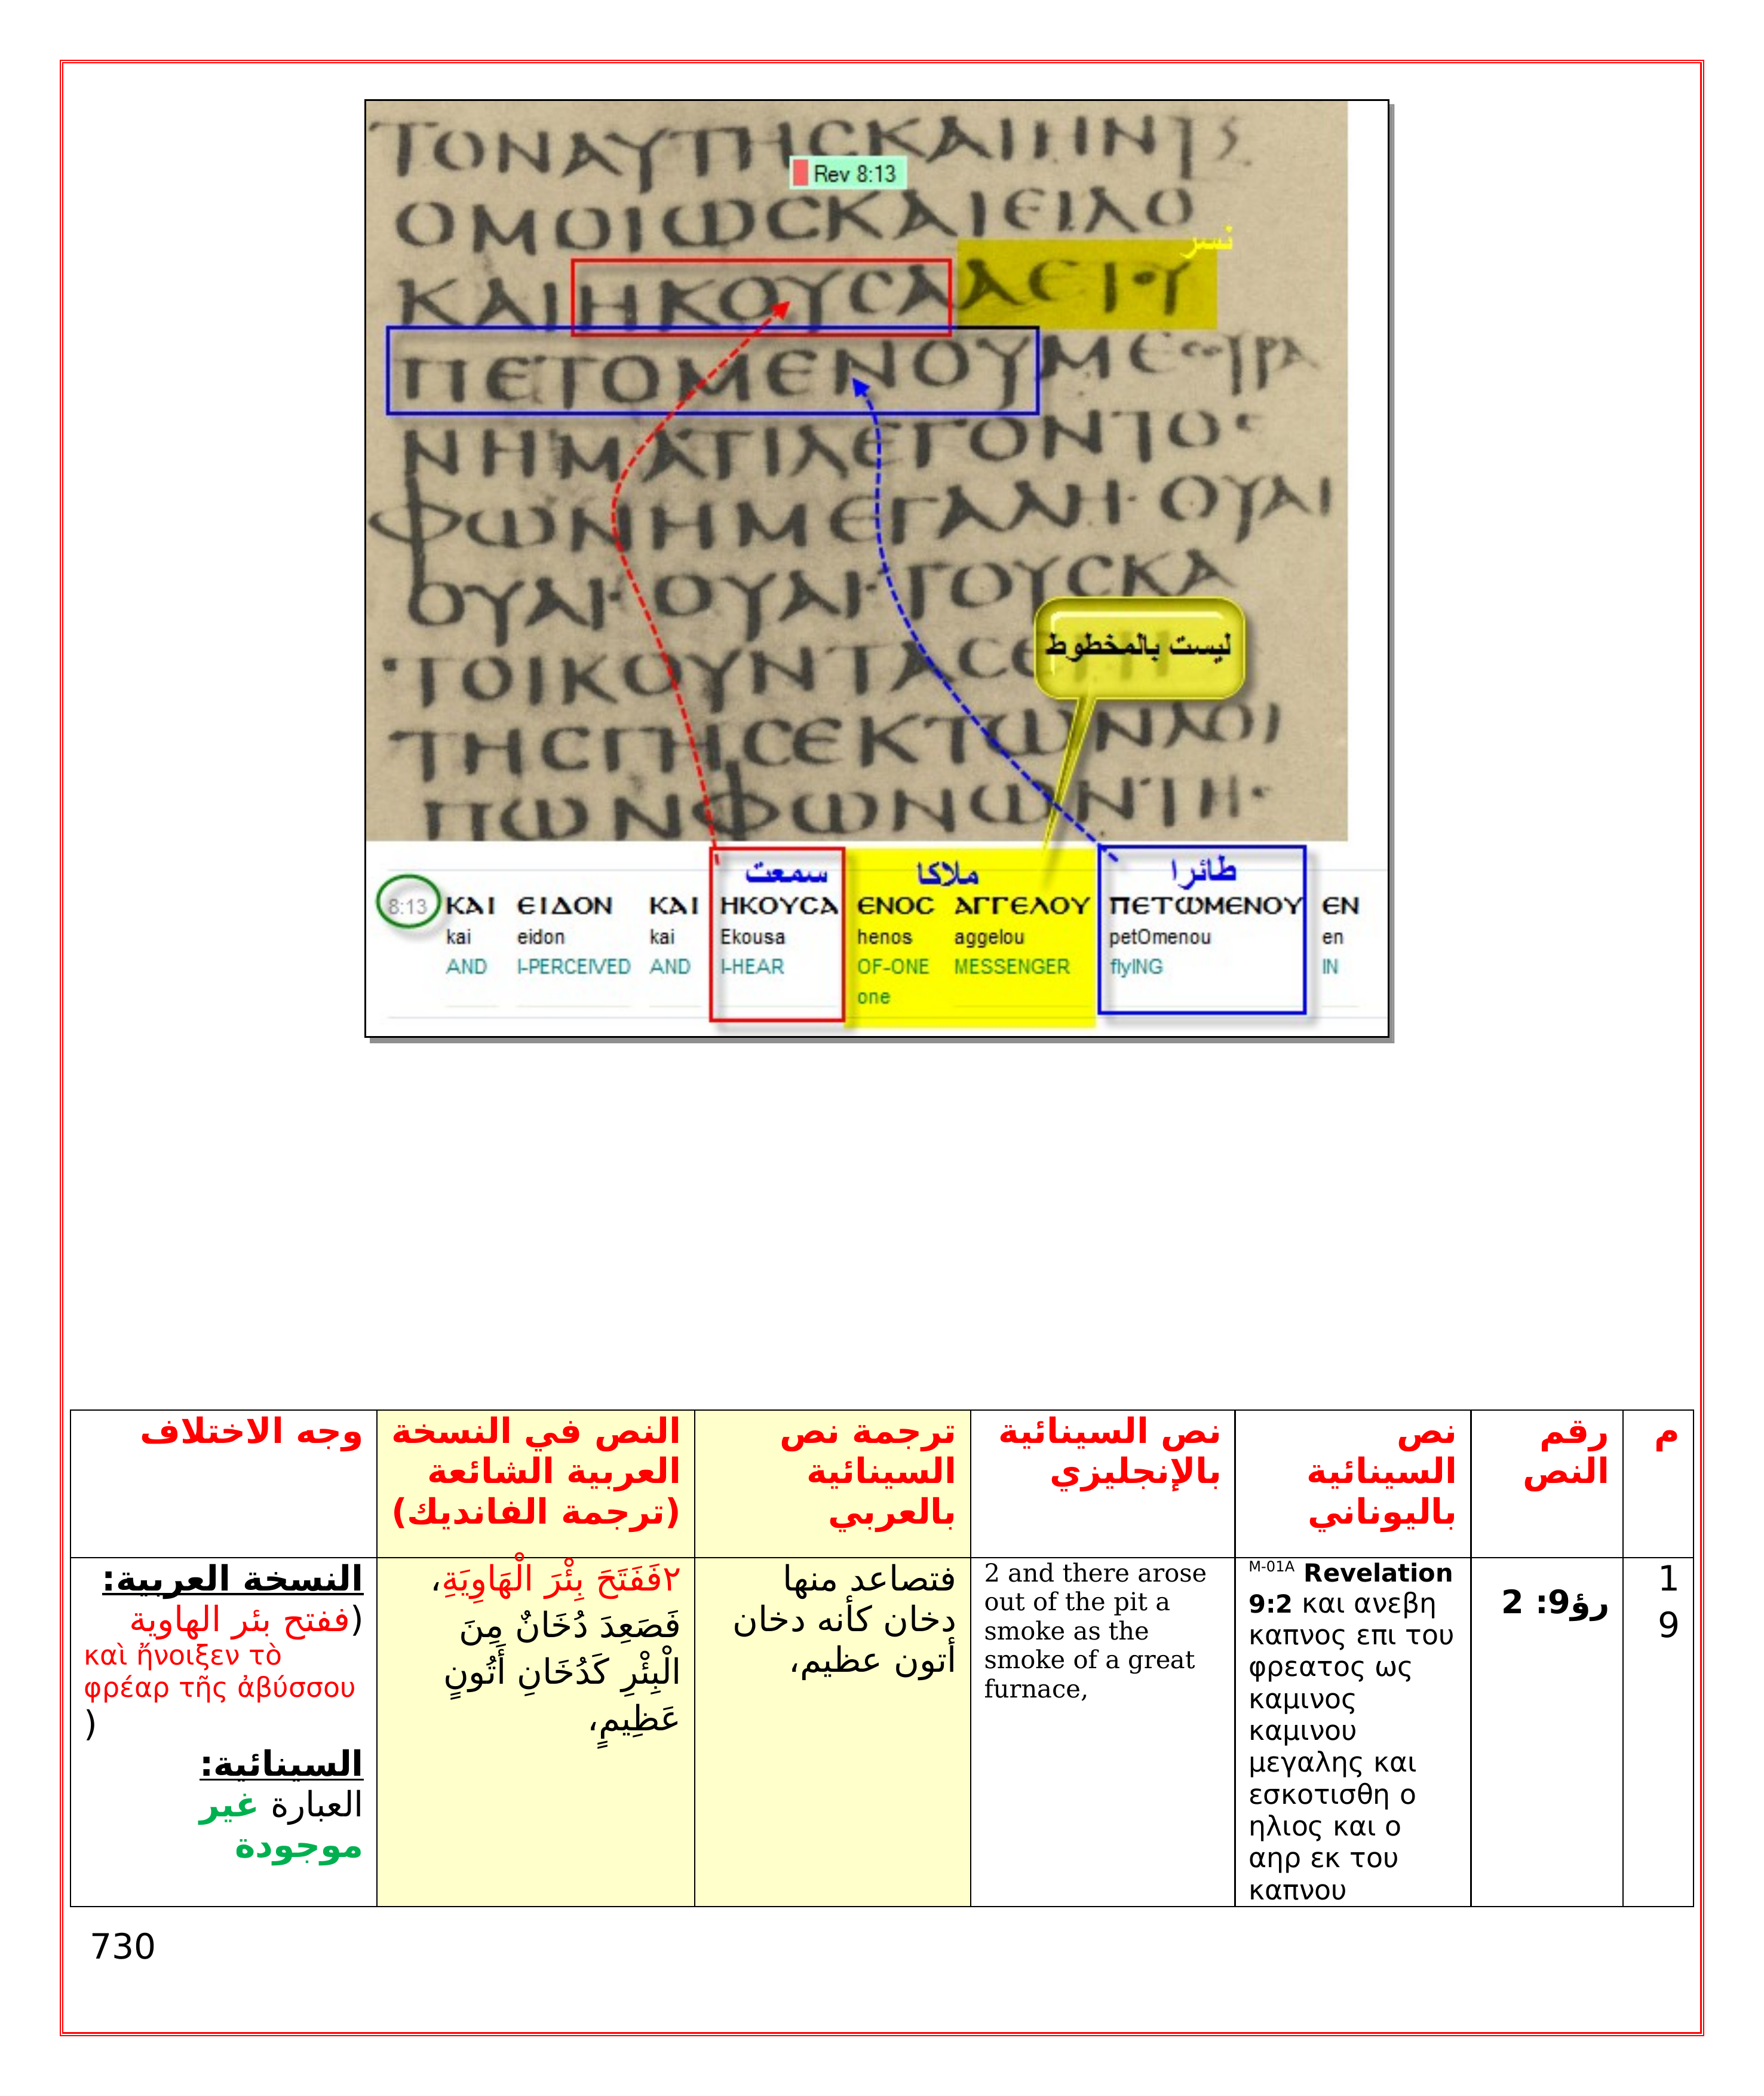 ΤΟΝΑΥΤΗCΚΑΙΗΝΞ
Rev 8:13
ΟΜΟΙΩCΚΑΙΕΙΔΟ
نسر
ΚΑΙΗΚΟΥCΑΑΕΤΟΥ
ΠΕΤΟΜΕΝΟΥΜΕCΟΥΡΑ
ΝΗΜΑΤΙΛΕΓΟΝΤΟC
ΦΩΝΗΜΕΓΑΛΗ·ΟΥΑΙ
ΟΥΑΙ·ΟΥΑΙ·ΤΟΥCΚΑ
ΤΟΙΚΟΥΝΤΑC
ليست بالمخطوط
ΤΗCΓΗCΕΚΤΩΝΛΟΙ
ΠΩΝΦΩΝΩΝΤΗC
سمعت ملاكا طائرا
8:13 ΚΑΙ ΕΙΔΟΝ ΚΑΙ ΗΚΟΥCΑ ΕΝΟC ΑΓΓΕΛΟΥ ΠΕΤΩΜΕΝΟΥ ΕΝ
kai eidon kai Ekousa henos aggelou petOmenou en
AND I-PERCEIVED AND I-HEAR OF-ONE MESSENGER flyING IN
one
م
رقم
النص
نص
السينائية
باليوناني
نص السينائية
بالإنجليزي
ترجمة نص
السينائية
بالعربي
النص في النسخة
العربية الشائعة
(ترجمة الفانديك)
وجه الاختلاف
1
9
رؤ9: 2
M-01A Revelation
9:2 και ανεβη
καπνος επι του
φρεατος ως
καμινος
καμινου
μεγαλης και
εσκοτισθη ο
ηλιος και ο
αηρ εκ του
καπνου
2 and there arose
out of the pit a
smoke as the
smoke of a great
furnace,
فتصاعد منها
دخان كأنه دخان
أتون عظيم،
٢فَفَتَحَ بِئْرَ الْهَاوِيَةِ،
فَصَعِدَ دُخَانٌ مِنَ
الْبِئْرِ كَدُخَانِ أَتُونٍ
عَظِيمٍ،
النسخة العربية:
(ففتح بئر الهاوية
καὶ ἤνοιξεν τὸ
φρέαρ τῆς ἀβύσσου
)
السينائية:
العبارة غير
موجودة
730